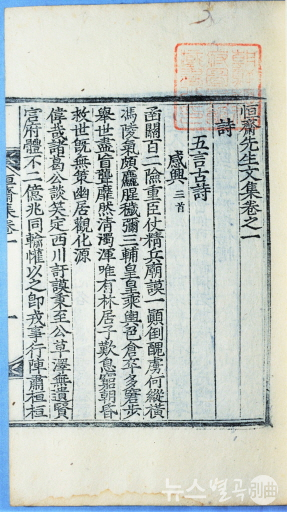 恒齋先生文集卷之一
詩
五言古詩
感興 二首
函關百二險重臣仗精兵廟謨一顚倒醜虜何縱橫
馮陵氣頗麤腥穢彌三輔皇皇乘輿色倉卒多窘步
舉世盡盲聾靡然淸濁渾唯有林居子歎息朝昏
救世旣無策幽居觀化源
偉哉諸葛公談笑定西川訏謨秉至公草澤無遺賢
宮府體不二億兆同輸懽以之卽戎事行陣肅桓桓
恒齋集卷一
一
뉴스별곡別曲